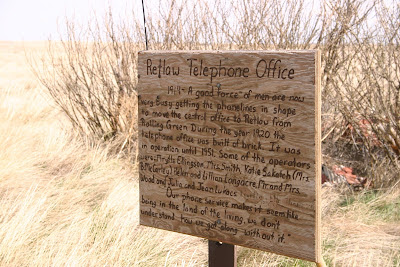 Retlaw Telephone Office
1914 - A good force of men are now
very busy getting the phonelines in shape
to move the central office to Retlaw from
Rolling Green. During the year 1920 the
telephone office was built of brick. It was
in operation until 1951. Some of the operators
were: Myrtle Ellingson, Miss Smith, Katie Sakatch (Mrs.
B. McCarley), Helen and Lillian Longacre, Mr. and Mrs.
Wood and Julia and Jean
"Our phone service makes it seem like
being in the land of the living, we don't
understand how we got along without it."